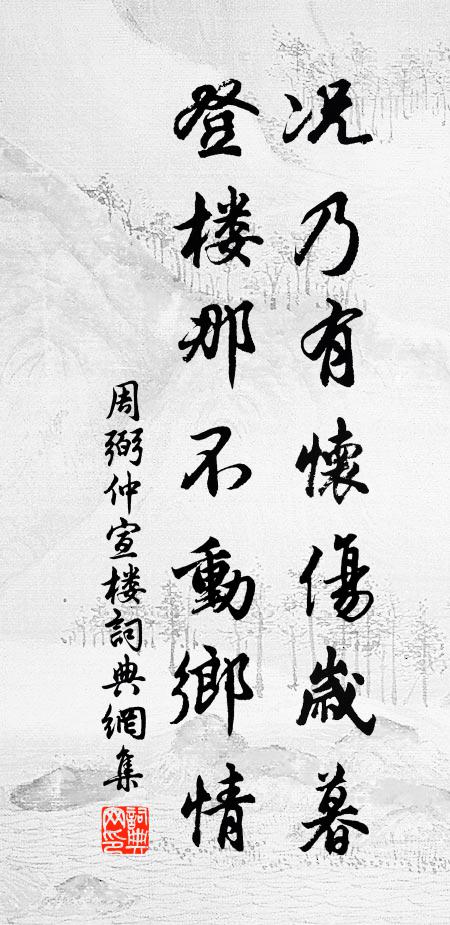 况乃有懷傷歲暮
登楼那不動鄉情
周弼仲宣楼詞典網集
詞典网印